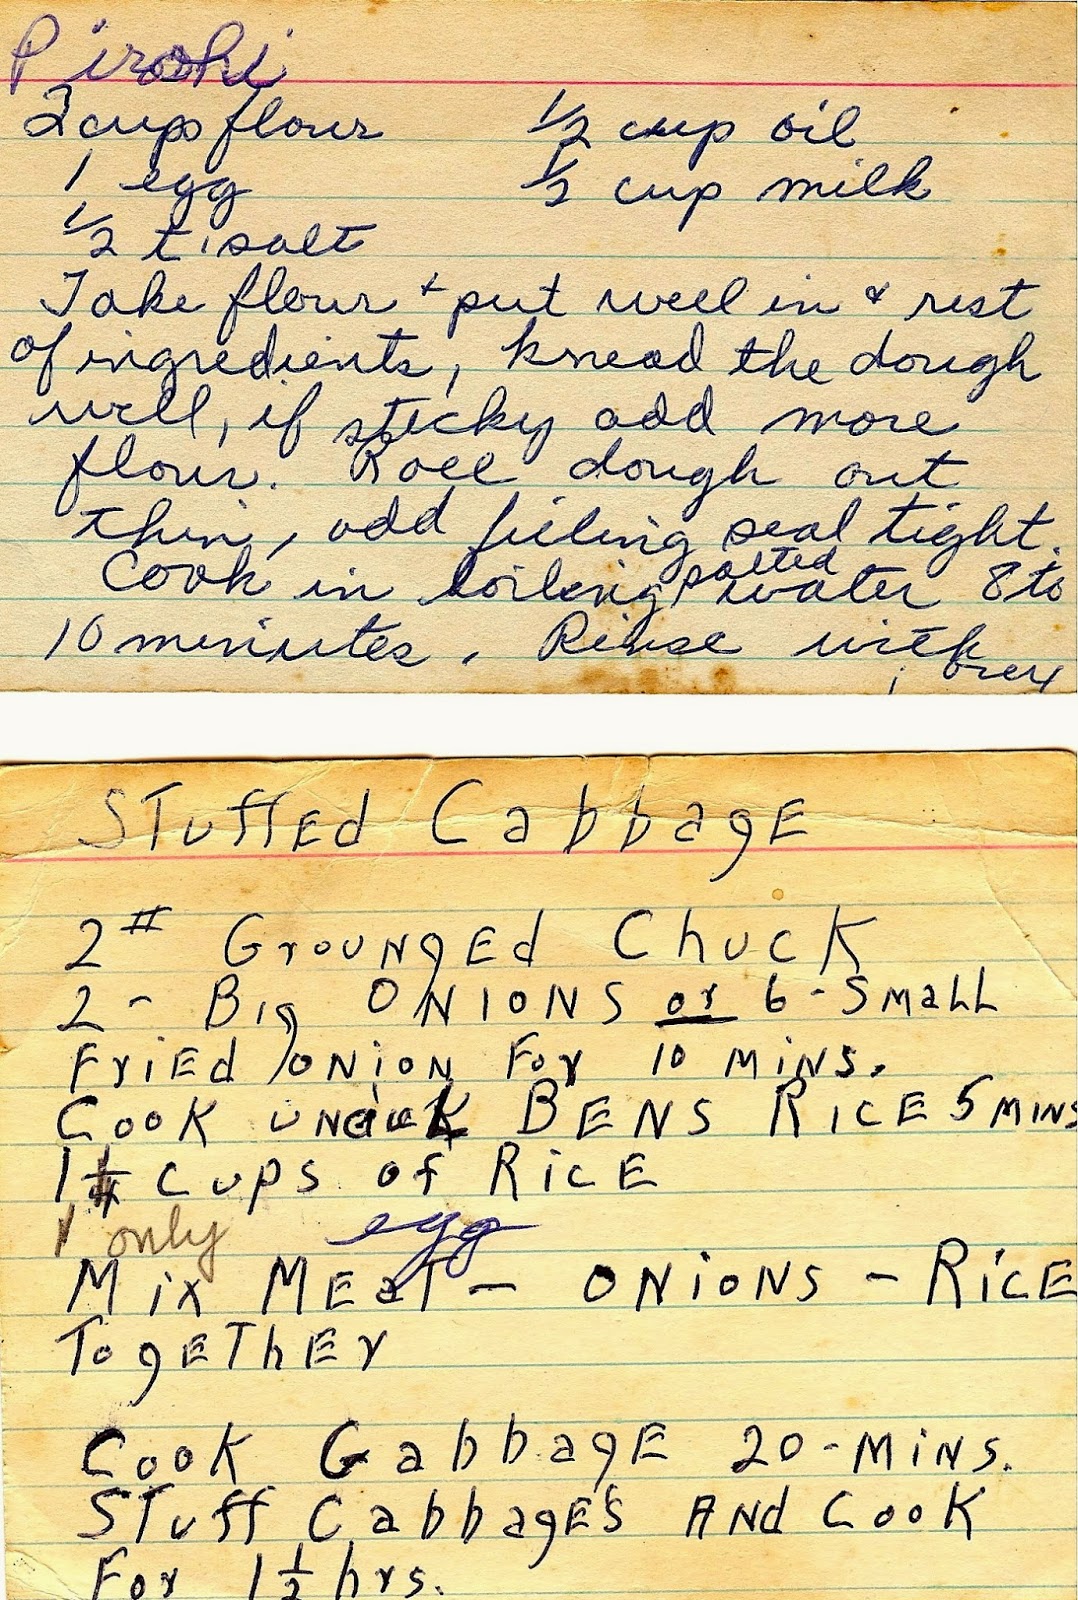 Pirohi
2 cups flour ½ cup oil
1 egg ½ cup milk
½ t. salt
Take flour + put well in & rest
of ingredients, knead the dough
well, if sticky add more
flour. Roll dough out
thin, add filling seal tight.
Cook in boiling salted water 8 to
10 minutes. Rinse with
over
Stuffed Cabbage
2# Grounged Chuck
2 - Big Onions or 6 - Small
Fried onion for 10 mins.
Cook Bens Rice 5 mins
1 cups of Rice
1 only egg
Mix Meat - Onions - Rice
Together
Cook Cabbage 20 - mins.
Stuff Cabbages And Cook
For 1½ hrs.